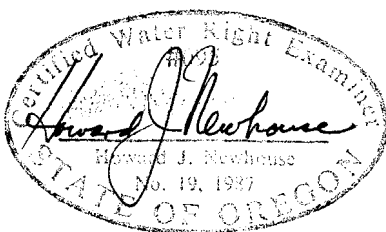 Certified Water Right Examiner
Howard J Newhouse
Howard J. Newhouse
No. 19, 1987
STATE OF OREGON